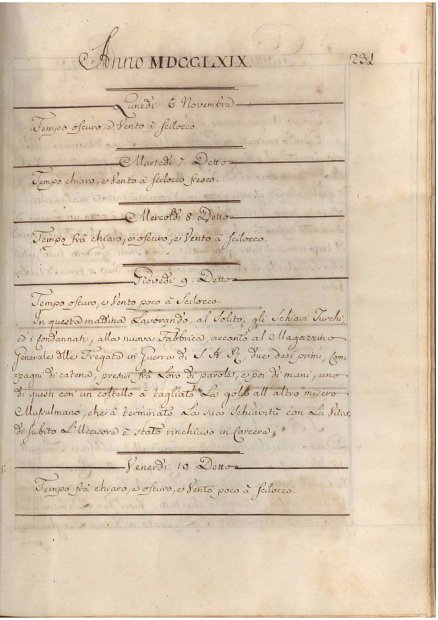 Anno MDCCLXIX.
231
Lunedi 6 Novembre
Tempo oscuro, e Vento à Scilocco.
Martedi 7. Detto
Tempo chiaro, e Vento à Scilocco fresco.
Mercoldi 8. Detto
Tempo frà chiaro, e oscuro, e Vento à Scilocco.
Giovedi 9. Detto
Tempo oscuro, e Vento poco à Scilocco.
In questa mattina Lavorando, al Solito, gli Schiavi Turchi,
ed i Condannati, alla nuova Fabbrica, accanto al Magazzino
Generale dlle Fregate in Guerra di S. A. R., due dei primi, Com,
pagni di catena, presisi frà Loro di parole, e poi di mani, uno
di questi con un coltello à tagliato La gola all'altro misero
Musulmano, che à terminato La sua Schiavitù con La Vita,
de subito L'Uccisore è stato rinchiuso in Carcere,
Venerdi 10. Detto
Tempo frà chiaro, e oscuro, e Vento poco à Scilocco.